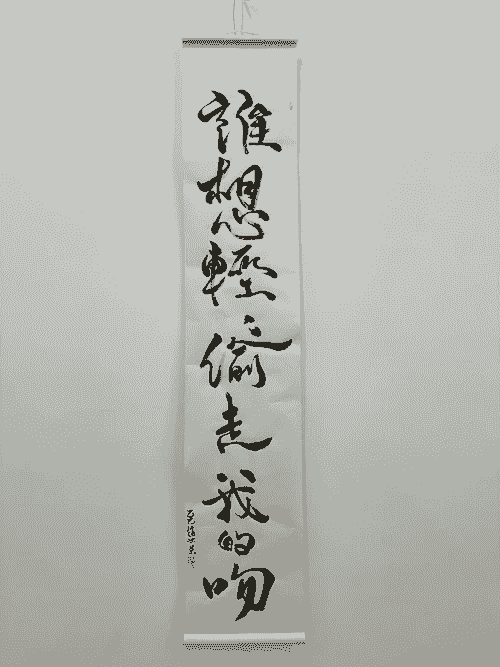 誰想輕〻偷走我的吻